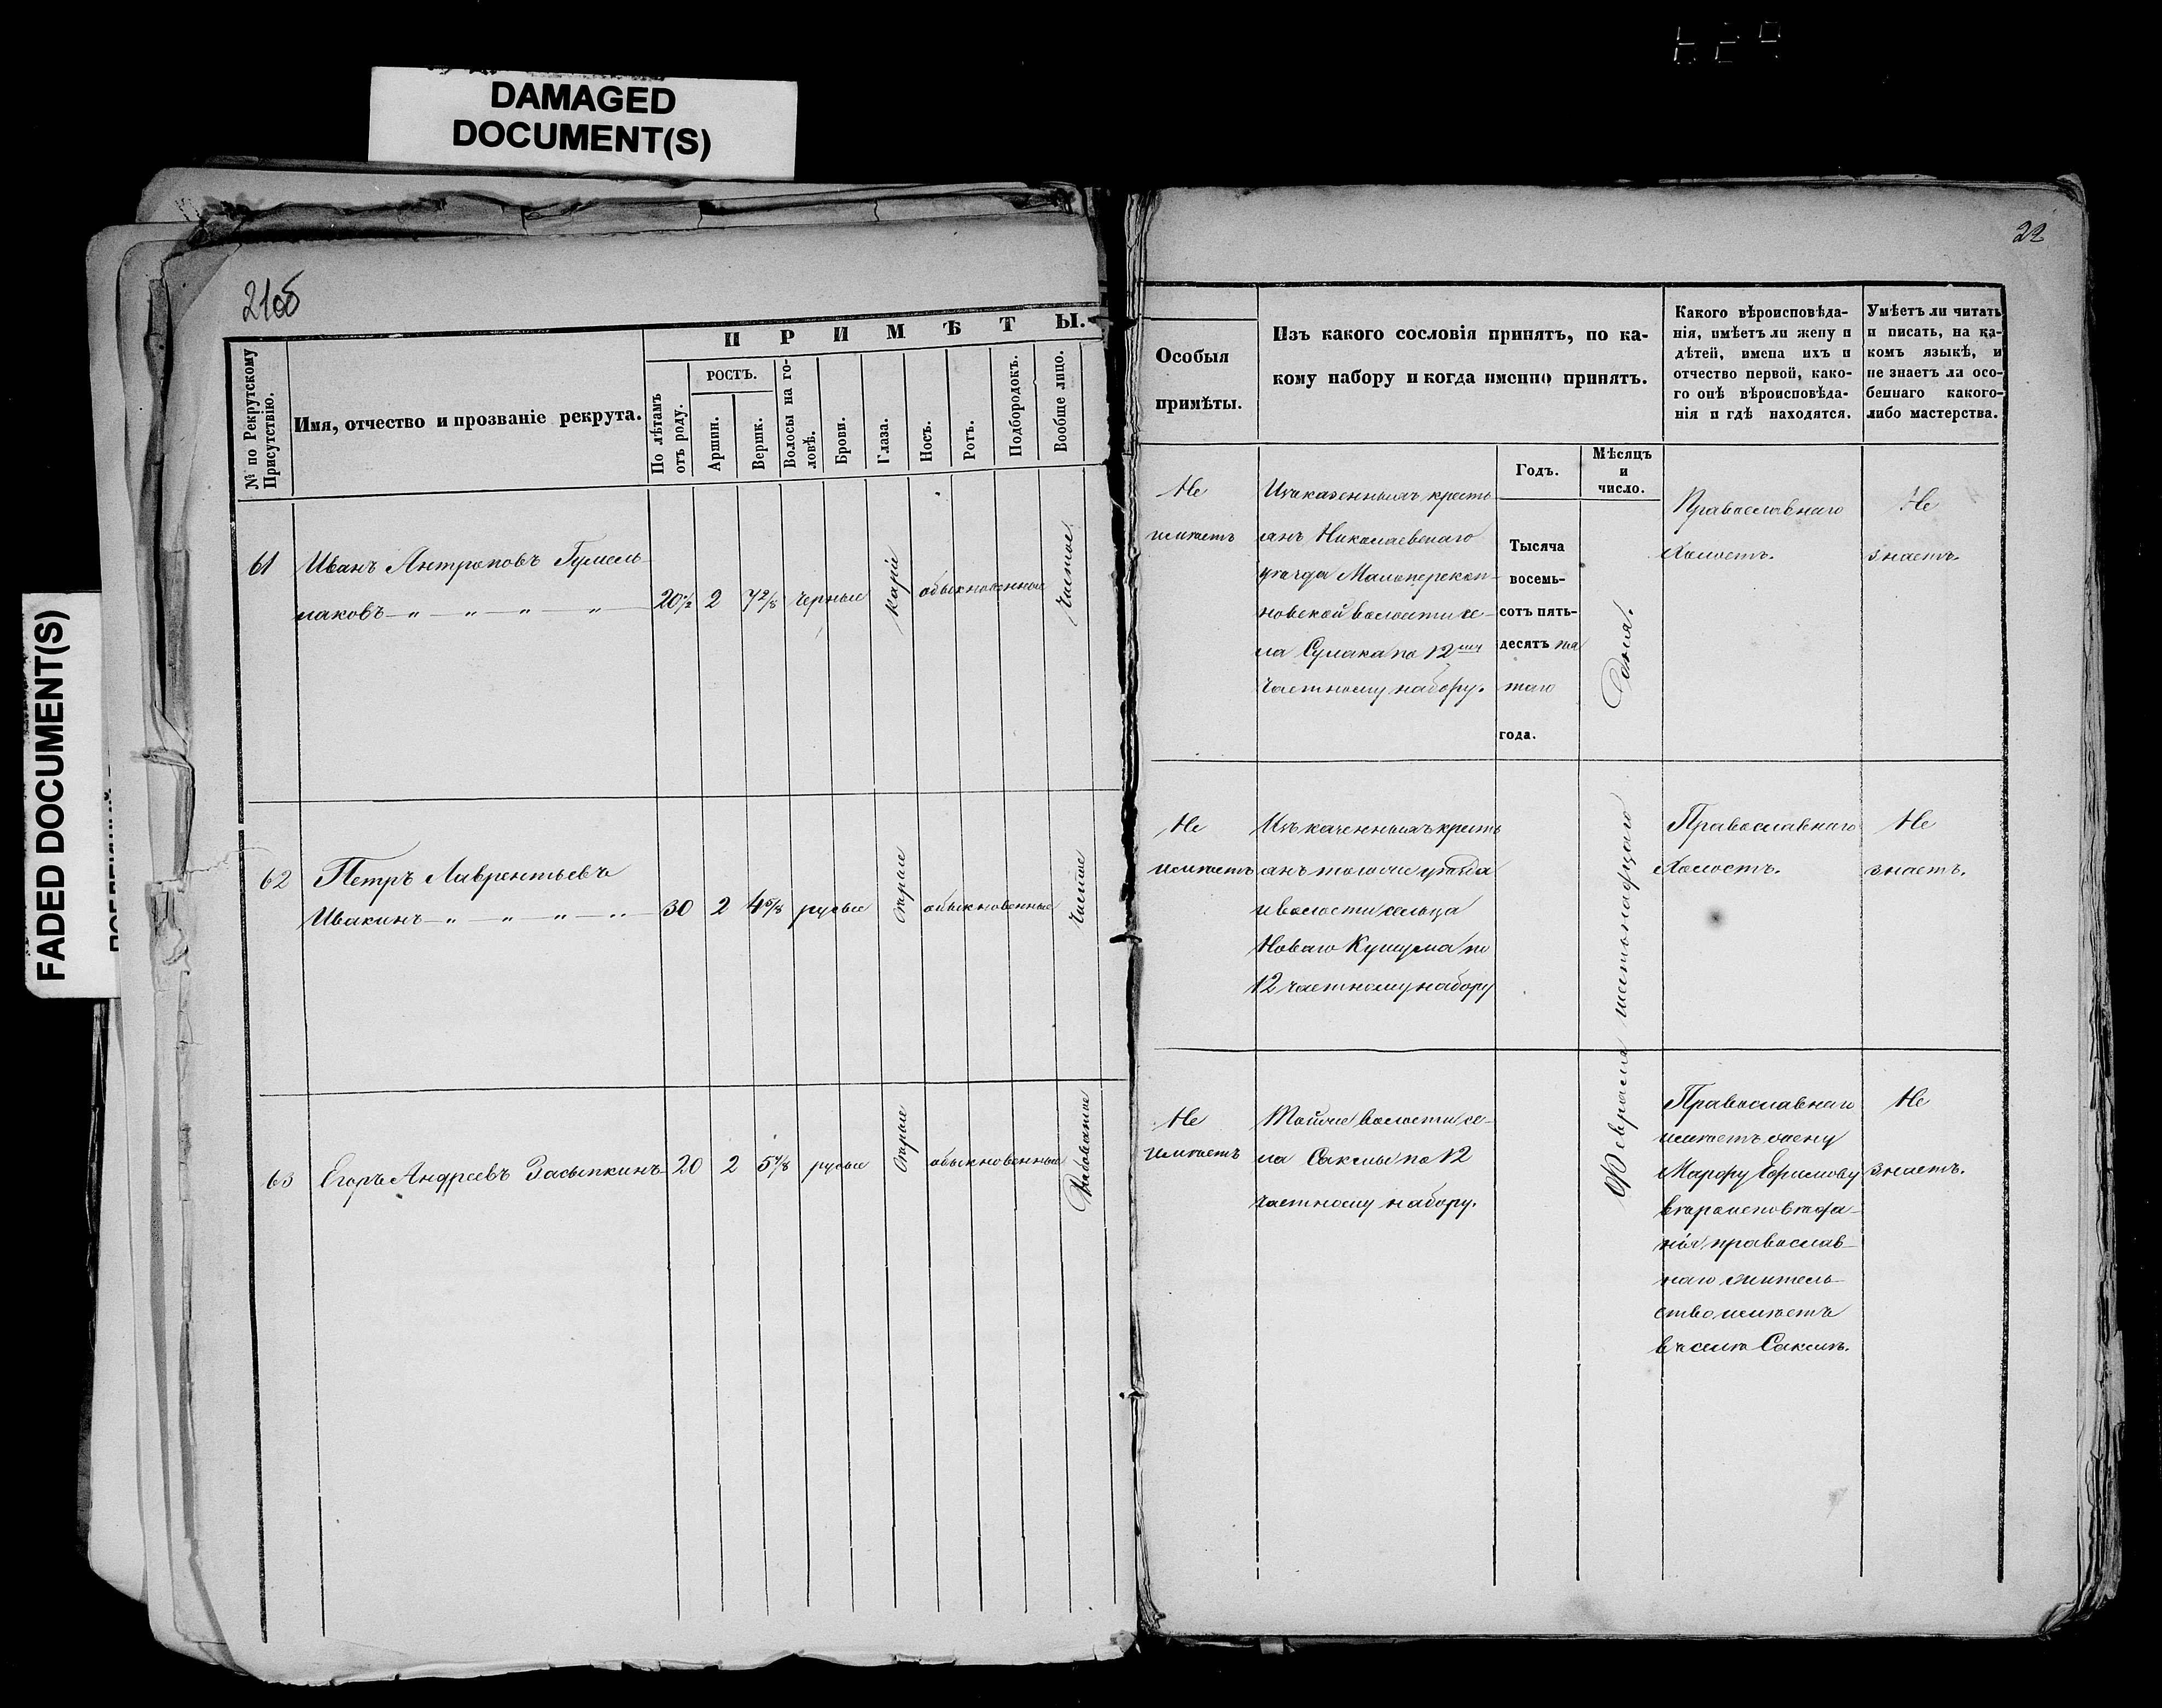 DAMAGED
DOCUMENT(S)
FADED DOCUMENT(S)
21об
П Р И М Ѣ Т Ы.
№ по Рекрутскому
Присутствію.
Имя, отчество и прозваніе рекрута.
По лѣтамъ
отъ роду.
РОСТЪ.
Аршин.
Вершк.
Волосы на го-
ловѣ.
Брови.
Глаза.
Носъ.
Ротъ.
Подбородокъ.
Вообще лицо.
61
Иванъ Антроповъ Гумель-
лаковъ — „ — „ — „ — „ —
20½ 2 7²/₈ черные карiе обыкновенные чистое
62
Петръ Лаврентьевъ
Ивакинъ — „ — „ — „ — „ —
30 2 4⁵/₈ русые серые обыкновенные чистое
63 Егоръ Андреевъ Засыпкинъ 20 2 5⁴/₈ русые серые обыкновенные рябоватое
22
Особыя
примѣты.
Изъ какого сословія принятъ, по ка-
кому набору и когда именно принятъ.
Какого вѣроисповѣда-
нія, имѣетъ ли жену и
дѣтей, имена ихъ и
отчество первой, како-
го онѣ вѣроисповѣда-
нія и гдѣ находятся.
Умѣетъ ли читать
и писать, на ка-
комъ языкѣ, и
не знаетъ ли осо-
беннаго какого-
либо мастерства.
Годъ.
Мѣсяцъ
и
число.
Не
имѣетъ
Изъ казенныхъ кресть
янъ Николаевскаго
уѣзда Малоперекоп-
новской волости се-
ла Сулака по 12му
частному набору.
Тысяча
восемь-
сотъ пять-
десятъ пя
таго
года.
дня.
Православнаго
Холостъ.
Не
знаетъ.
Не
имѣетъ
Изъ казенныхъ кресть
янъ тогоже уѣзда
и волости сельца
Новаго Кушума по
12 частному набору
Февраля шестонадцатаго
Православнаго
Холостъ.
Не
знаетъ.
Не
имѣетъ
Тойже волости се-
ла Саксы по 12
частному набору.
Православнаго
имѣетъ жену
Марфу Ефимову
вѣроисповѣда-
нiя православ-
наго житель-
ство имѣетъ
въ селѣ Саксѣ.
Не
знаетъ.